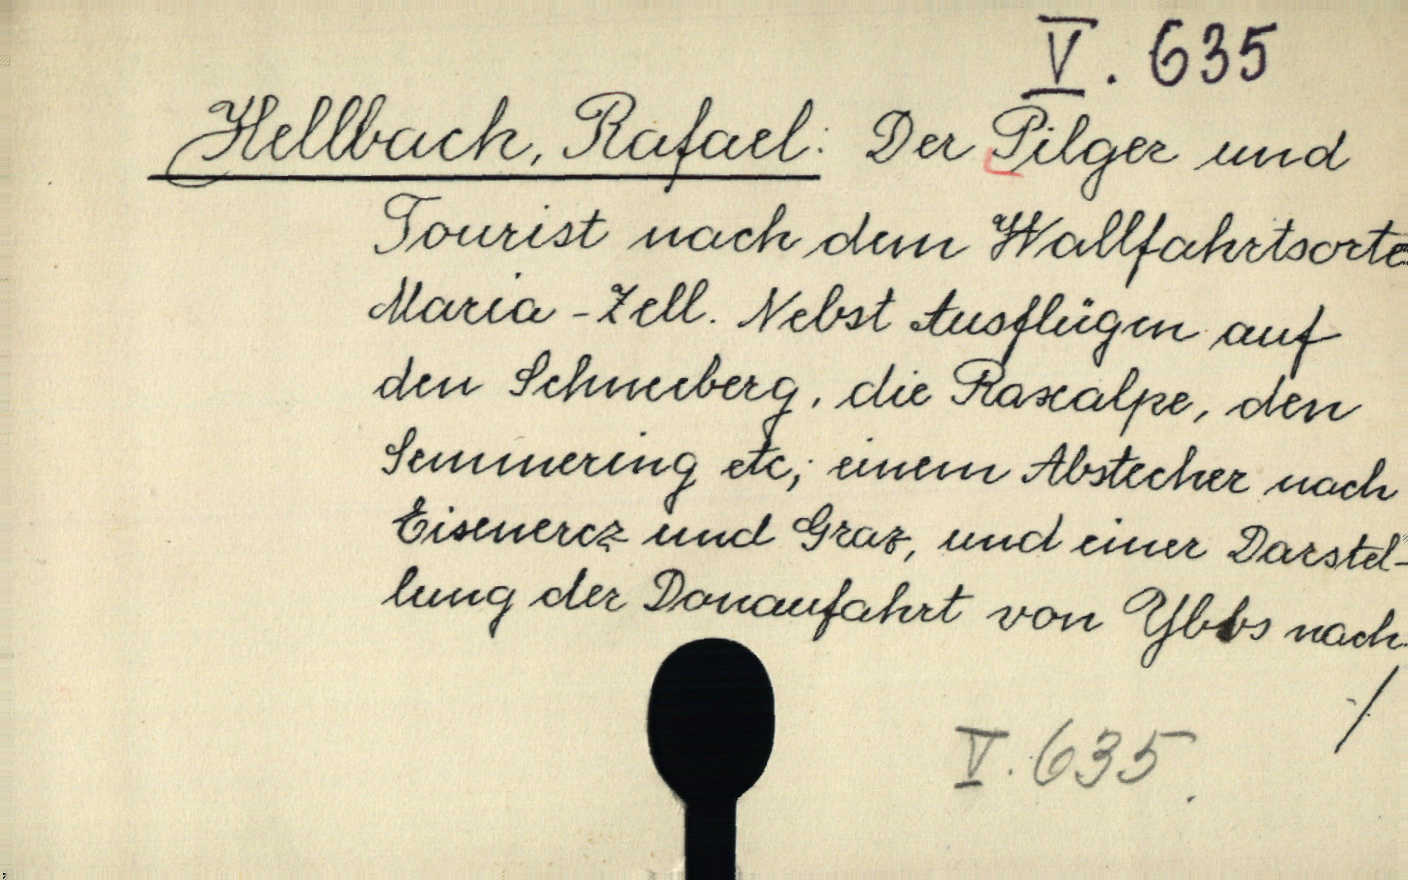 V. 635
Hellbach, Rafael: Der Pilger und
Tourist nach dem Wallfahrtsorte
Maria-Zell. Nebst Ausflügen auf
den Schneeberg, die Raxalpe, den
Semmering etc; einem Abstecher nach
Eisenercz und Graz, und einer Darstel-
lung der Donaufahrt von Ybbs nach
./.
V. 635.